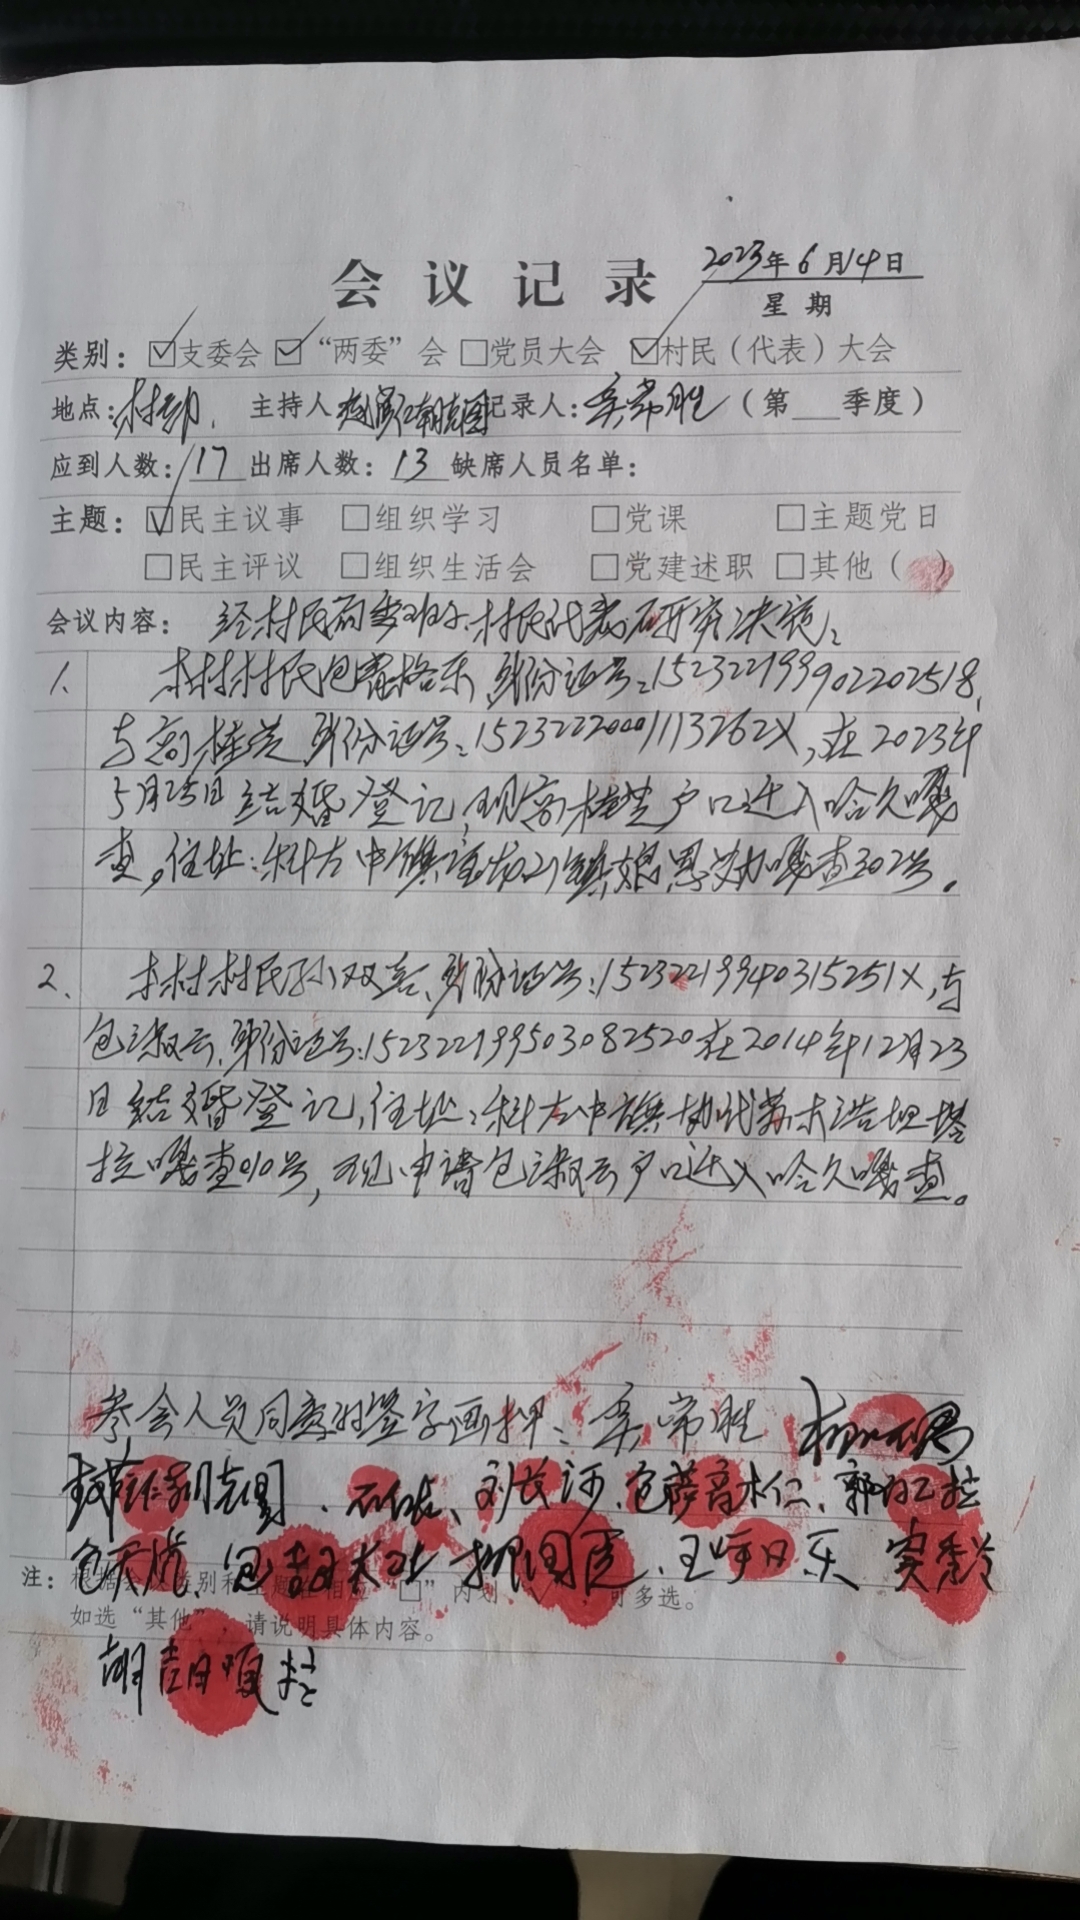 会议记录 2023年6月14日
星期
类别：☑支委会 ☑“两委”会 □党员大会 ☑村民（代表）大会
地点：村部. 主持人 记录人：常胜（第__季度）
应到人数：17 出席人数：13 缺席人员名单：
主题：☑民主议事 □组织学习 □党课 □主题党日
□民主评议 □组织生活会 □党建述职 □其他（ ）
会议内容：经村民两委班子、村民代表研究决议：
1、 本村村民包 格乐 身份证号：152322199902202518、
与高桂 身份证号：15232220001113262X，在2023年
5月25日结婚登记，现高桂 户口迁入哈久嘎
查。住址：科左中旗宝龙山镇 嘎查302号。
2、 本村村民孙双喜、身份证号：15232219940315251X，与
包淑云、身份证号：152322199503082520在2014年12月23
日结婚登记，住址：科左中旗 代苏木浩坦塔
拉嘎查010号，现申请包淑云户口迁入哈久嘎查。
参会人员同意的签字画押： 常胜
刘长河、包 木仁、
包 、 、王 日乐
注：根据 类别和主题 相 “□”内划 可多选。
如选“其他”，请说明具体内容。
朝 嘎拉